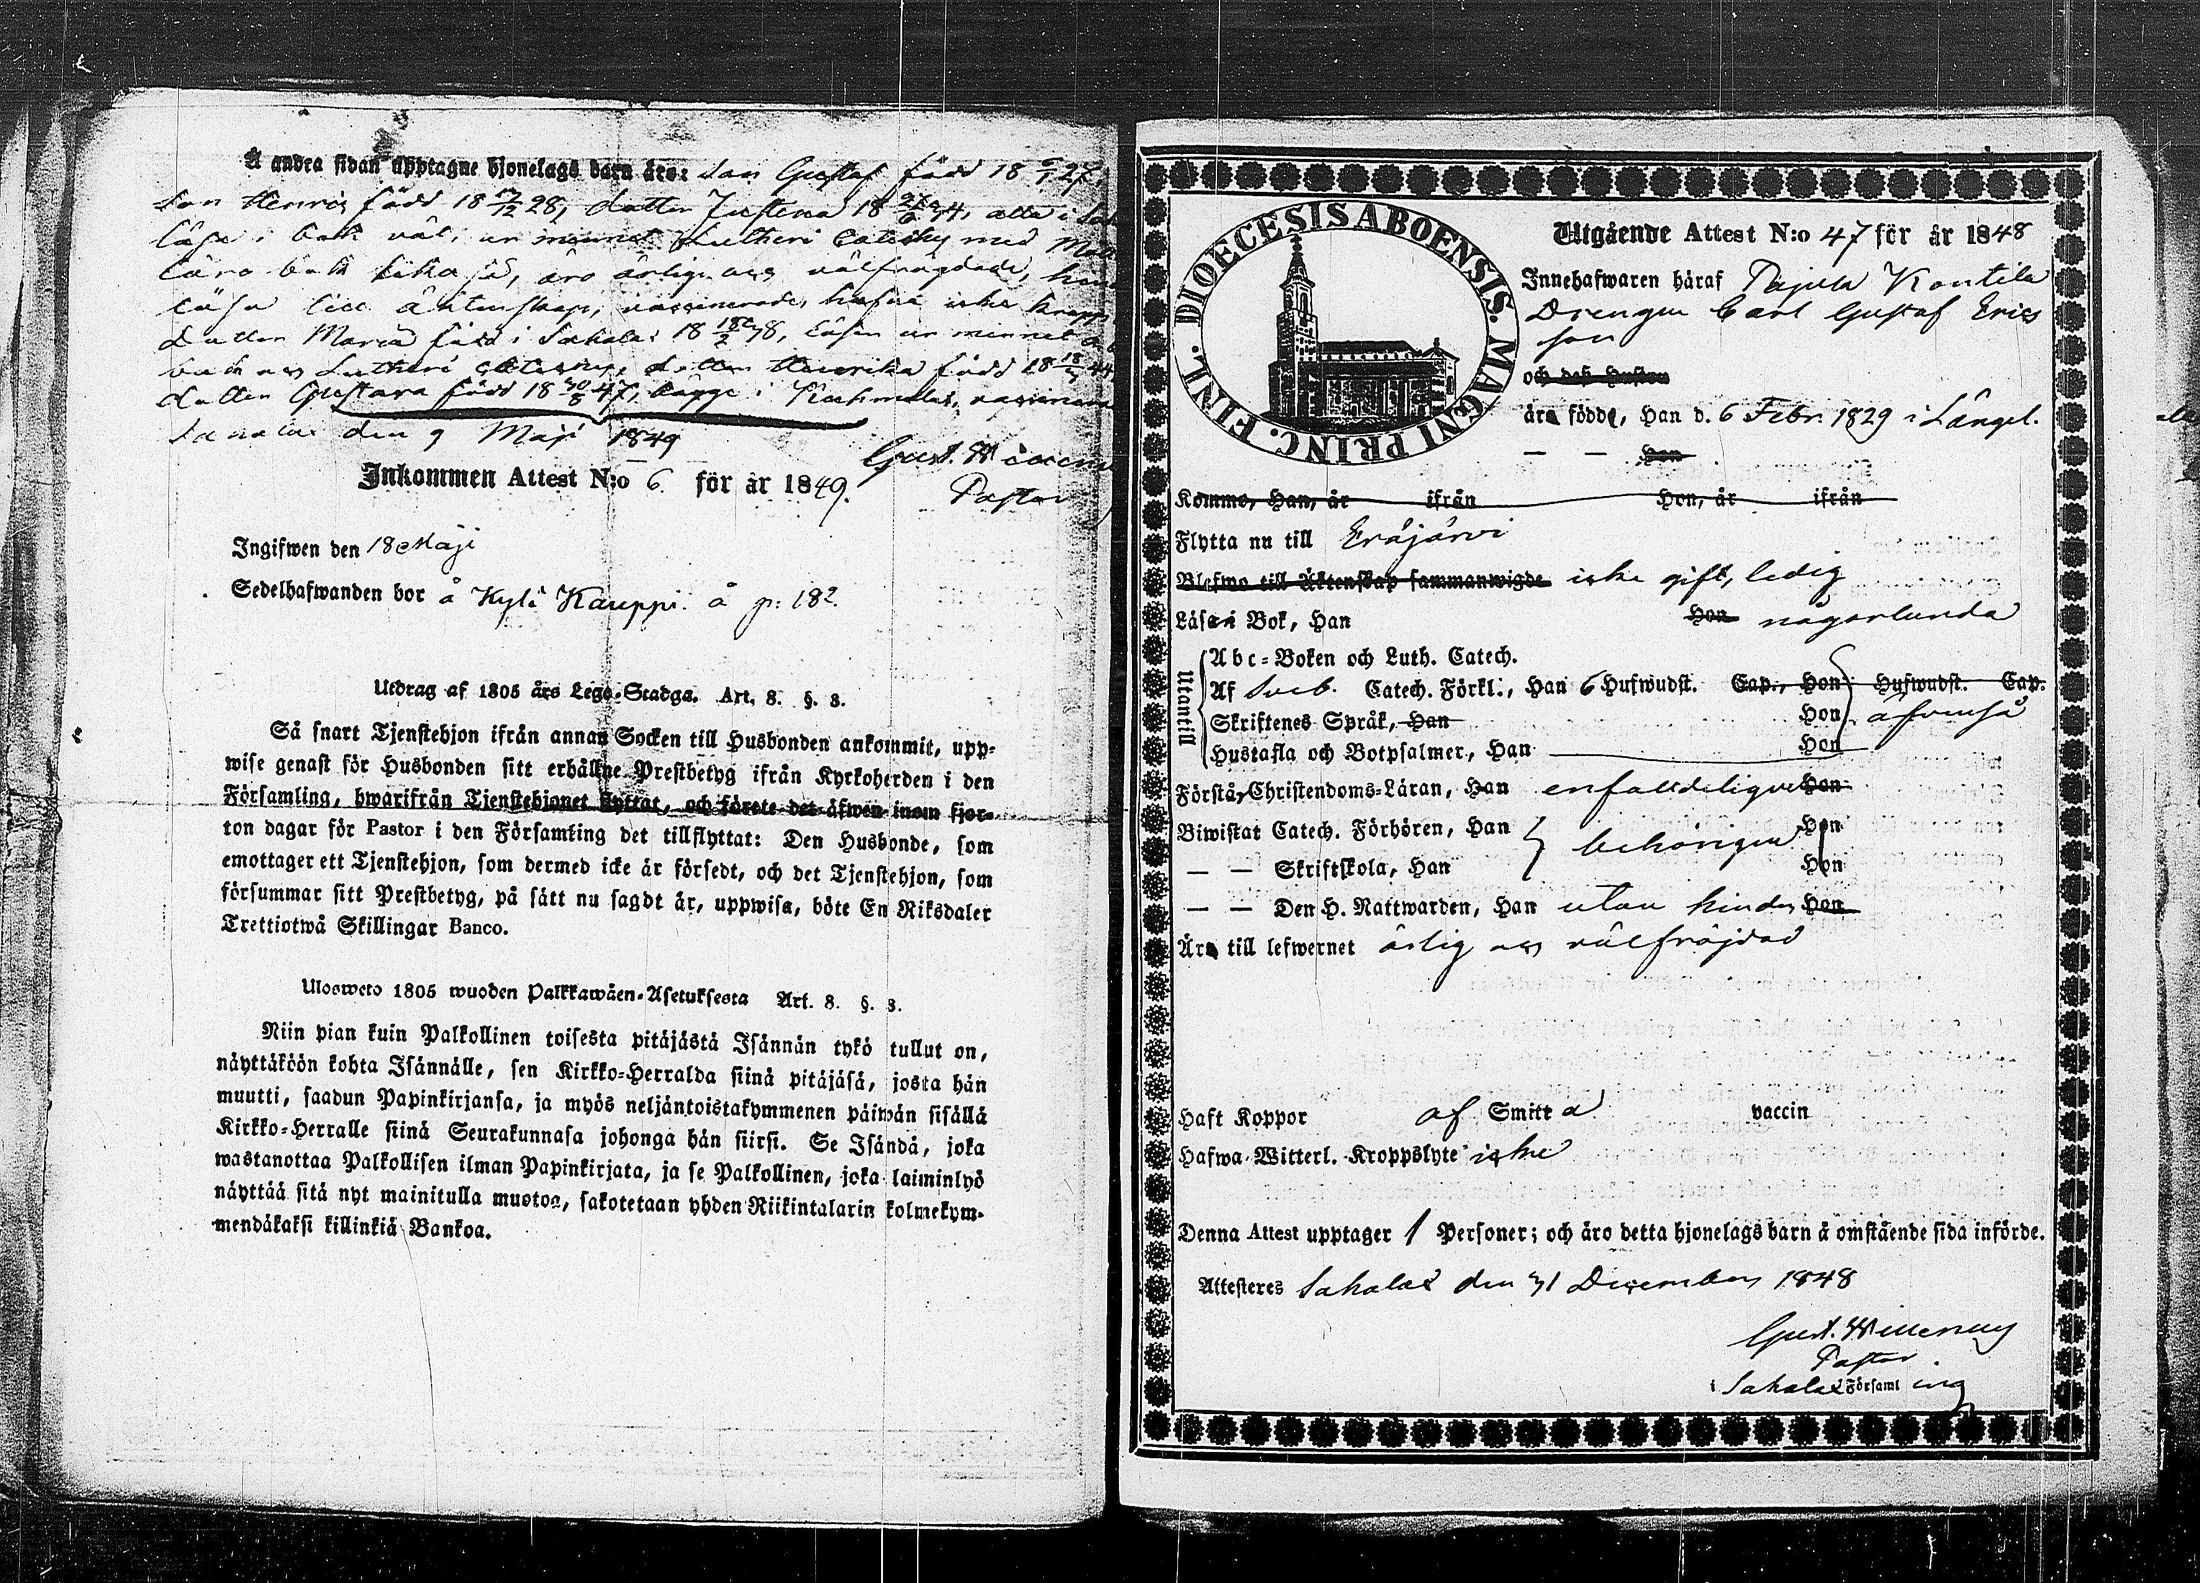 Å andra sidan upptagne hjonelags barn äro: Son Gustaf född 18 27,
Son Henric född 18 17/12 28, dotter Justina 18 34, alla i
läsa i bok väl, ur minnet Lutheri Cateches med
lära bok likaså, äro ärlige och välfrägdade,
läsa till äktenskap, vaccinerade, hafva icke kropps
dotter Maria född i Sahalax 18 38, läser ur minnet
bok och Lutheri Cateches, dotter Henrika född 18
dotter Gustava född 18 30/8 47, begge i Kuhmalax,
Sahalax den 9 Maji 1849
Gust. Willenius
Pastor
Inkommen Attest N:o 6 för år 1849.
Ingifwen den 18 Maji
Sedelhafwanden bor å Kylä Kauppi å p: 182.
Utdrag af 1805 års Lego-Stadga. Art. 8. §. 3.
Så snart Tjenstehjon ifrån annan Socken till Husbonden ankommit, upp-
wise genast för Husbonden sitt erhållne Prestbetyg ifrån Kyrkoherden i den
Församling, hwarifrån Tjenstehjonet flyttat, och förete det äfwen inom fjor-
ton dagar för Pastor i den Församling det tillflyttat: Den Husbonde, som
emottager ett Tjenstehjon, som dermed icke är försedt, och det Tjenstehjon, som
försummar sitt Prestbetyg, på sätt nu sagdt är, uppwisa, böte En Riksdaler
Trettiotwå Skillingar Banco.
Ulosweto 1805 wuoden Palkkawäen-Asetuksesta Art. 8. §. 3.
Niin pian kuin Palkollinen toisesta pitäjästä Isännän tykö tullut on,
näyttäköön kohta Isännälle, sen Kirkko-Herralda siinä pitäjäsä, josta hän
muutti, saadun Papinkirjansa, ja myös neljäntoistakymmenen päiwän sisällä
Kirkko-Herralle siinä Seurakunnasa johonga hän siirsi. Se Isändä, joka
wastanottaa Palkollisen ilman Papinkirjata, ja se Palkollinen, joka laiminlyö
näyttää sitä nyt mainitulla muotoa, sakotetaan yhden Riikintalarin kolmekym-
mendäkaksi killinkiä Bankoa.
DIOECESIS ABOENSIS. MAGNI PRINC. FINL.
Utgående Attest N:o 47 för år 1848
Innehafwaren häraf Pajula Konttila
Drengen Carl Gustaf Erics
son
och dess Hustru
äro födde, Han d. 6 Febr. 1829 i Längel.
— — Hon
Kommo, Han, år ifrån Hon, år ifrån
Flytta nu till Eräjärvi
Blefwo till Äktenskap sammanwigde icke gift, ledig
Läsa i Bok, Han Hon någorlunda
Utantill
Abc-Boken och Luth. Catech.
Af Sveb. Catech. Förkl., Han 6 Hufwudst. Cap., Hon Hufwudst. Cap.
Skriftenes Språk, Han Hon äfvenså
Hustafla och Botpsalmer, Han Hon
Förstå Christendoms-Läran, Han enfalldeligen Hon
Biwistat Catech. Förhören, Han behörigen Hon
— — Skriftskola, Han Hon
— — Den H. Nattwarden, Han utan hinder Hon
Äro till lefwernet ärlig och välfräjdad
Haft Koppor af Smitta vaccin
Hafwa Witterl. Kroppslyte icke
Denna Attest upptager 1 Personer; och äro detta hjonelags barn å omstående sida införde.
Attesteres Sahalax den 31 December 1848
Gust. Willenius
Pastor
i Sahalax Församling